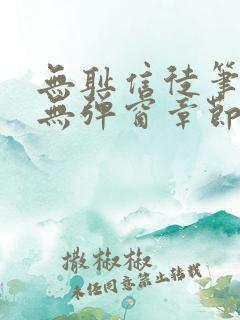 無耻信徒筆
無彈窗章節
撒椒椒
未經同意禁止轉載